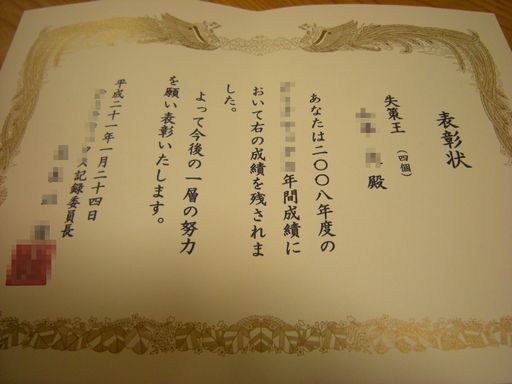 表彰状
失策王 (四個)
殿
あなたは二〇〇八年度の
年間成績に
おいて右の成績を残されま
した。
よって今後の一層の努力
を願い表彰いたします。
平成二十一年一月二十四日
ス記録委員長